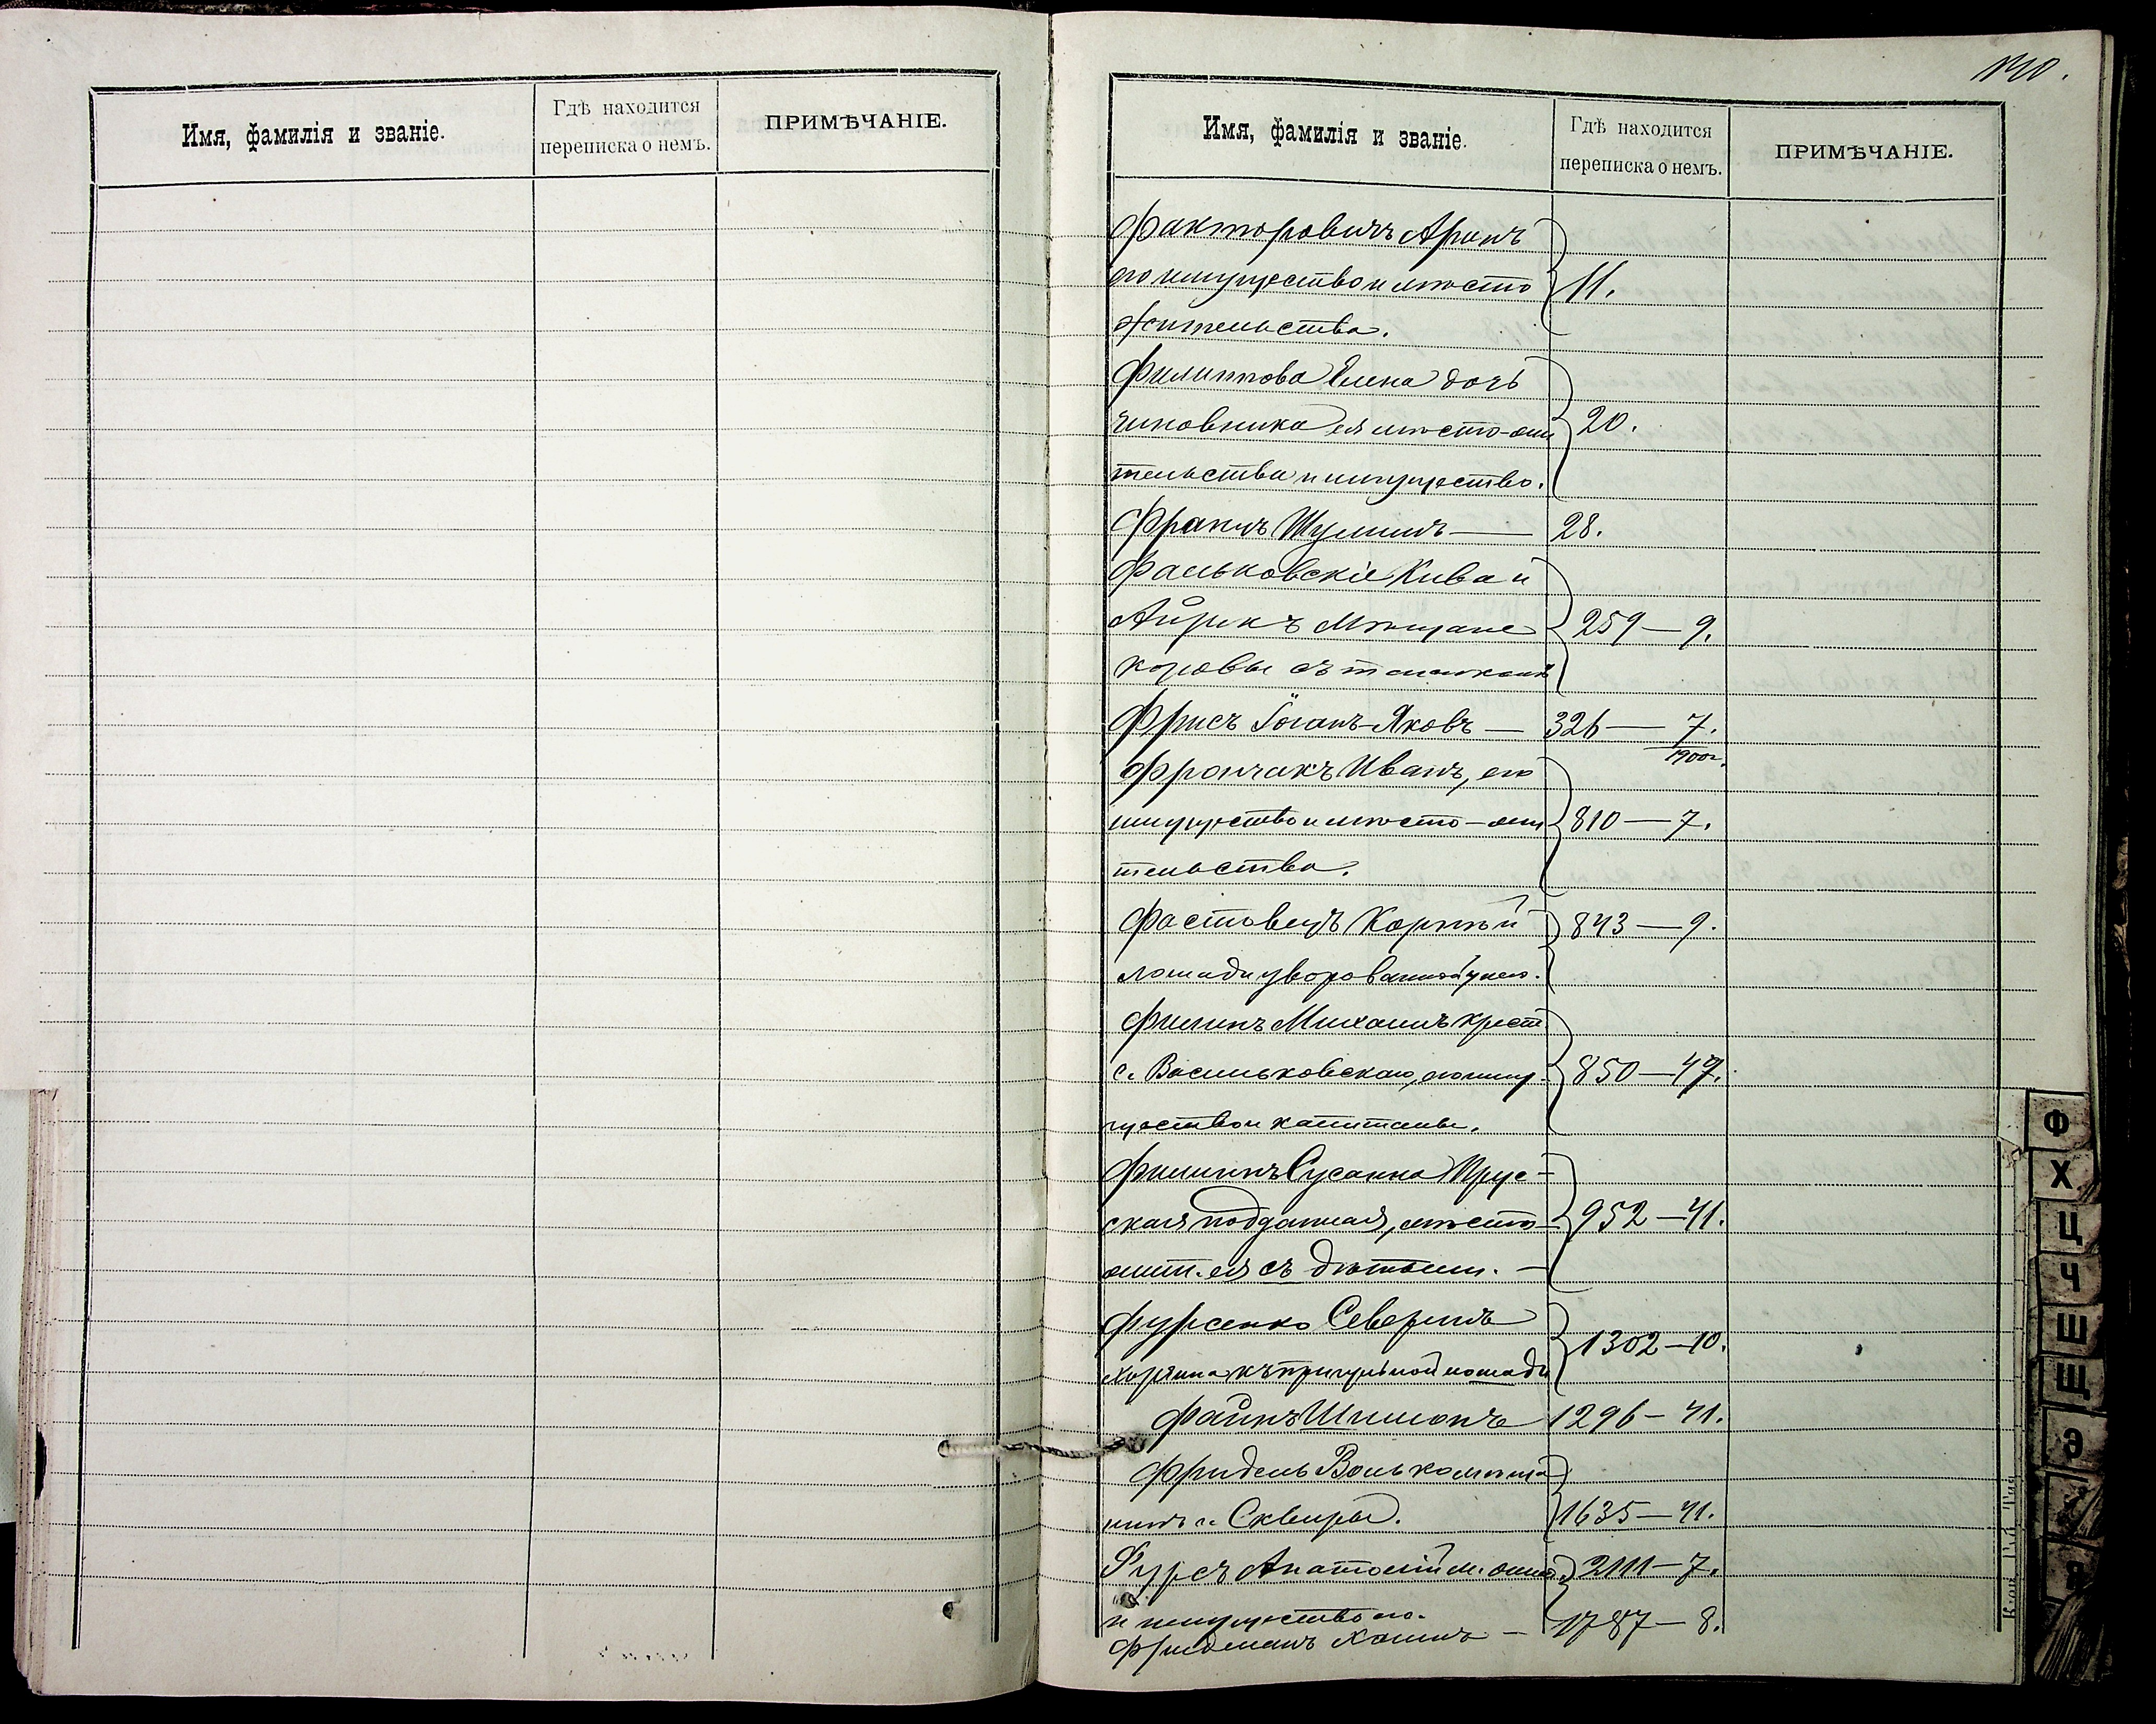 Имя, фамилія и званіе.
Гдѣ находится
переписка о немъ.
ПРИМѢЧАНІЕ.
140.
Имя, фамилія и званіе.
Гдѣ находится
переписка о немъ.
ПРИМѢЧАНІЕ.
Факторовичъ Аронъ
его имущество и мѣсто
жительства. 11.
Филиппова Елена дочь
чиновника ея мѣсто-жи
тельства и имущество. 20.
Францъ Шулимъ — 28.
Фальковскіе Кива и
Айзикъ Мѣщане 259 — 9.
коровы съ теленкомъ
Фрисъ Іоганъ-Яковъ — 326 — 7.
1900г.
Фрончакъ Иванъ, его
имущество и мѣсто-жи 810 — 7.
тельства.
Фастовецъ Корнѣй 843 — 9.
лошади уворованной у него.
Филинъ Михаилъ крест
с. Васильковскаго, его иму- 850 — 47.
щество и капиталы.
Филиппъ Сусанна Прус-
ская подданная, мѣсто- 952 — 41.
жит. ея съ дѣтьми. —
Фурсенко Северинъ
хозяина къ пригульной лошади 1302 — 10.
Файнъ Шимонъ 1296 — 41.
Фридель Волько мѣща
нинъ г. Сквиры. 1635 — 41.
Фурсъ Анатолій м. жит. 2111 — 7.
и имущество его.
Фридманъ Хаимъ — 1787 — 8.
Ф
Х
Ц
Ч
Ш
Щ